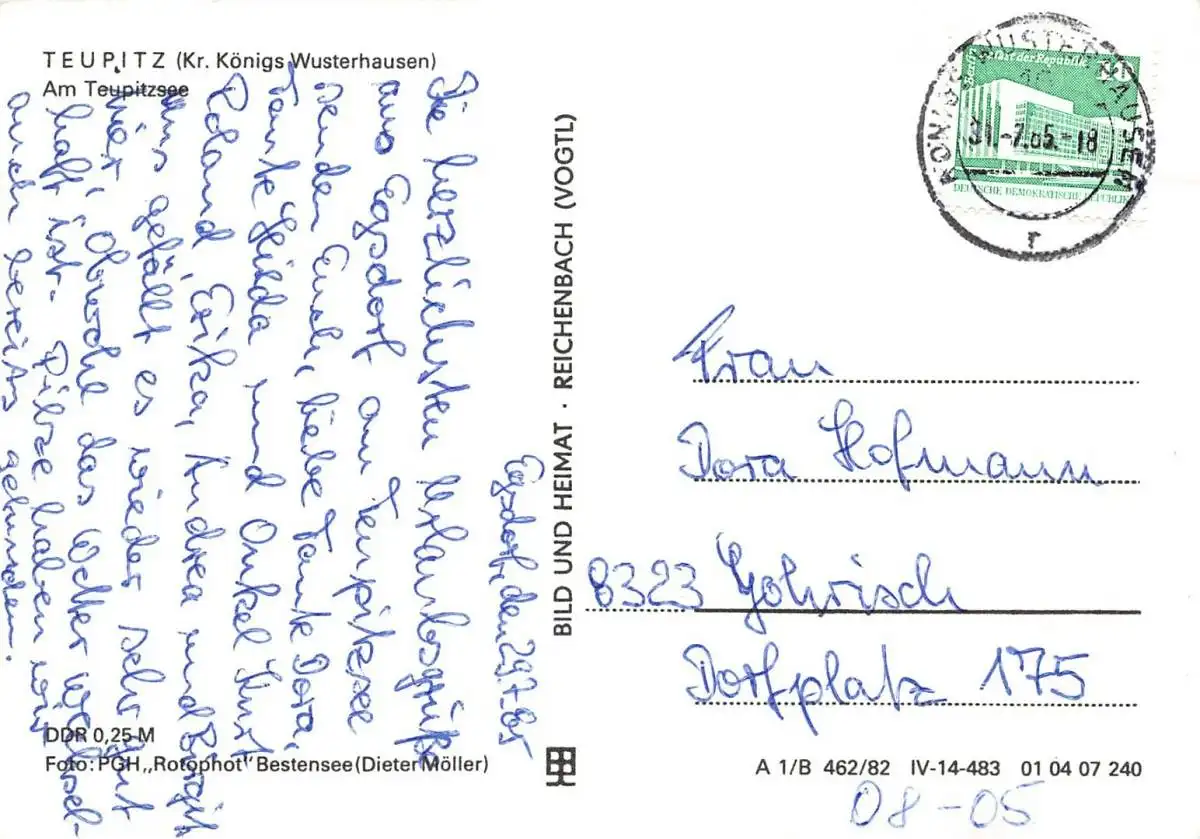 TEUPITZ (Kr. Königs Wusterhausen)
Am Teupitzsee
Egsdorf, den 29.7.85
Die herzlichsten Urlaubsgrüße
aus Egsdorf am Teupitzsee
senden Euch, liebe Tante Dora,
Tante Hilda und Onkel Kurt
Roland, Erika, Andrea und Birgit
Uns gefällt es wieder sehr gut
hier, obwohl das Wetter wechsel-
haft ist. Pilze haben wir
auch bereits gefunden.
DDR 0,25 M
Foto: PGH „Rotophot" Bestensee (Dieter Möller)
BILD UND HEIMAT · REICHENBACH (VOGTL)
Berlin Palast der Republik
DEUTSCHE DEMOKRATISCHE REPUBLIK
KÖNIGS WUSTERHAUSEN
31.-7.85.-18
r
Frau
Dora Hofmann
8323 Gohrisch
Dorfplatz 175
A 1/B 462/82 IV-14-483 01 04 07 240
08-05